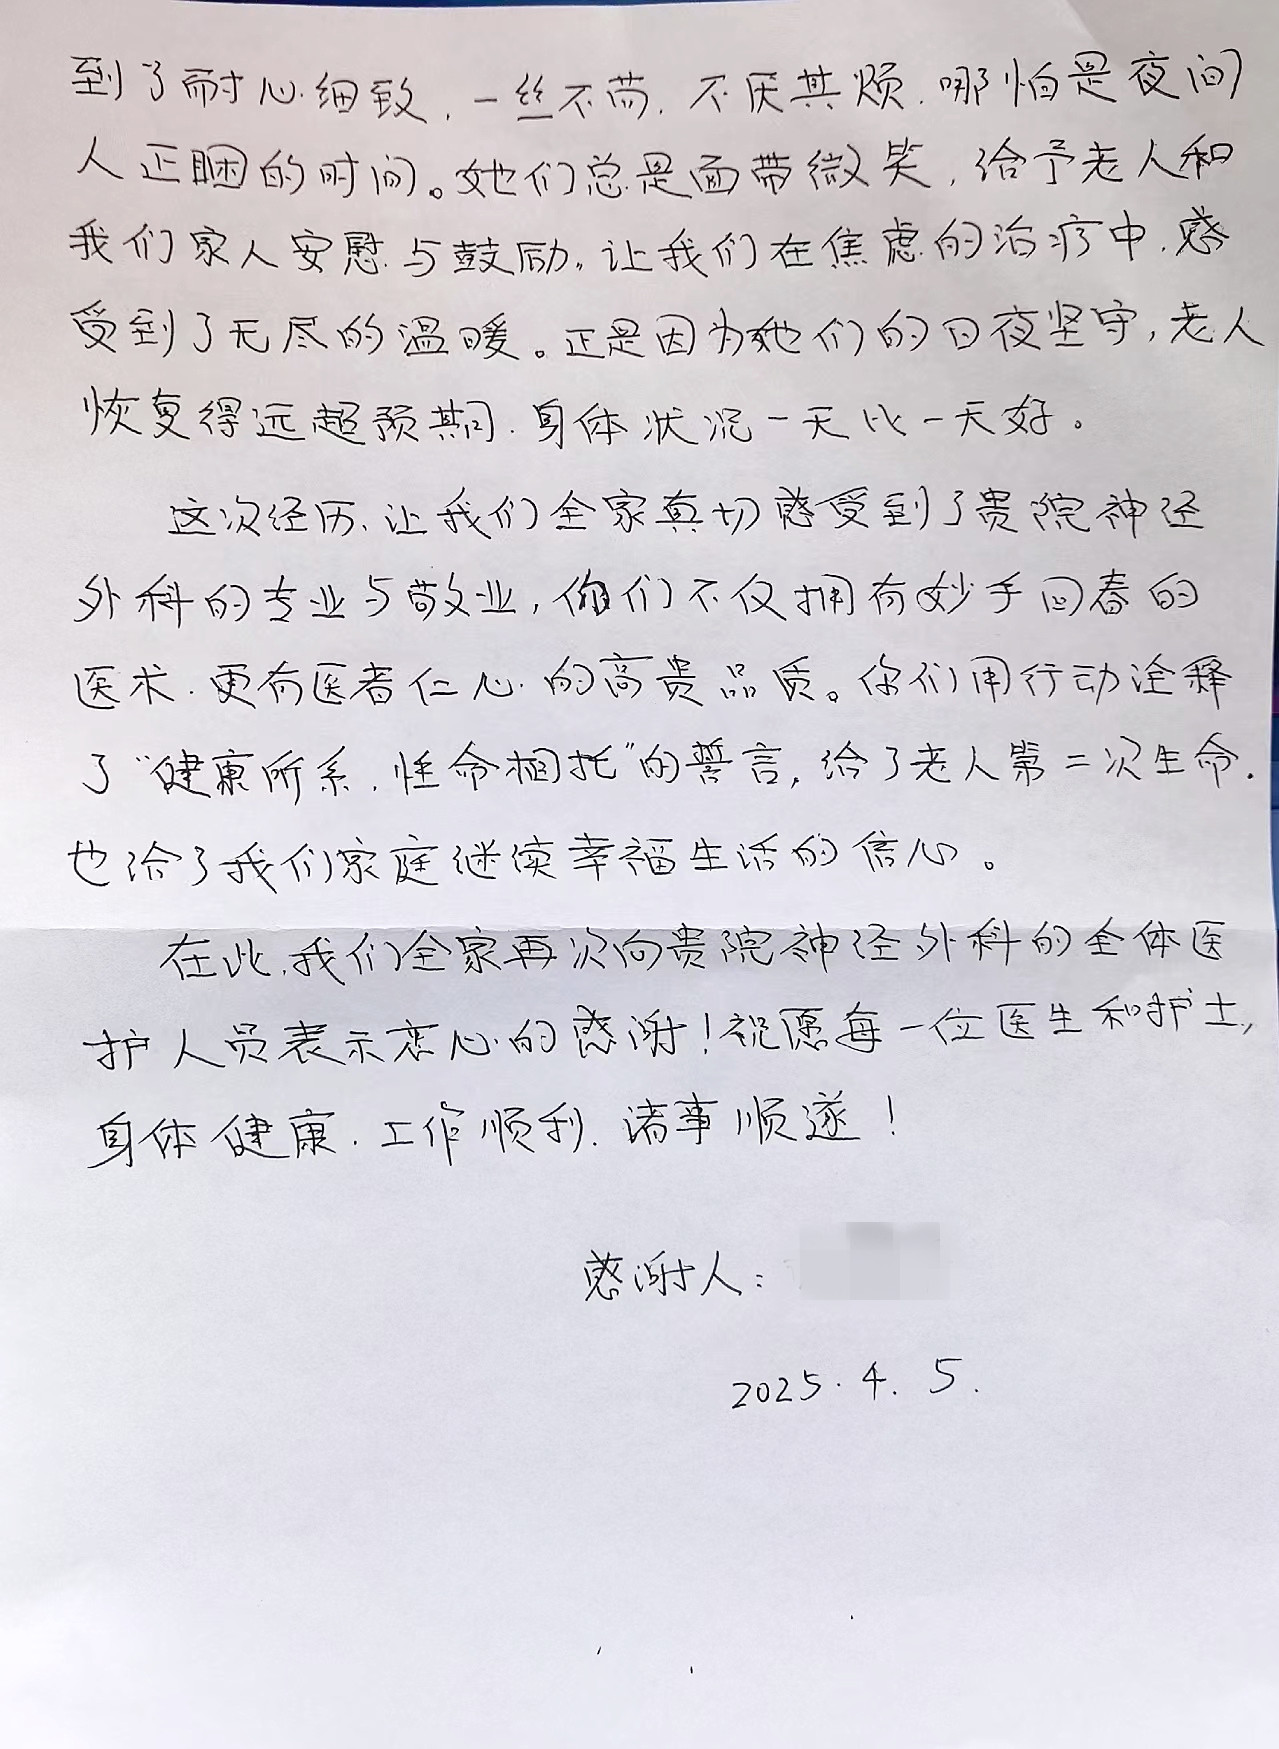 到了耐心细致，一丝不苟，不厌其烦，哪怕是夜间
人正困的时间。她们总是面带微笑，给予老人和
我们家人安慰与鼓励，让我们在焦虑的治疗中，感
受到了无尽的温暖。正是因为她们的日夜坚守，老人
恢复得远超预期，身体状况一天比一天好。
这次经历，让我们全家真切感受到了贵院神经
外科的专业与敬业，你们不仅拥有妙手回春的
医术，更有医者仁心的高贵品质。你们用行动诠释
了“健康所系，性命相托”的誓言，给了老人第二次生命，
也给了我们家庭继续幸福生活的信心。
在此，我们全家再次向贵院神经外科的全体医
护人员表示衷心的感谢！祝愿每一位医生和护士，
身体健康，工作顺利，诸事顺遂！
感谢人：
2025.4.5.